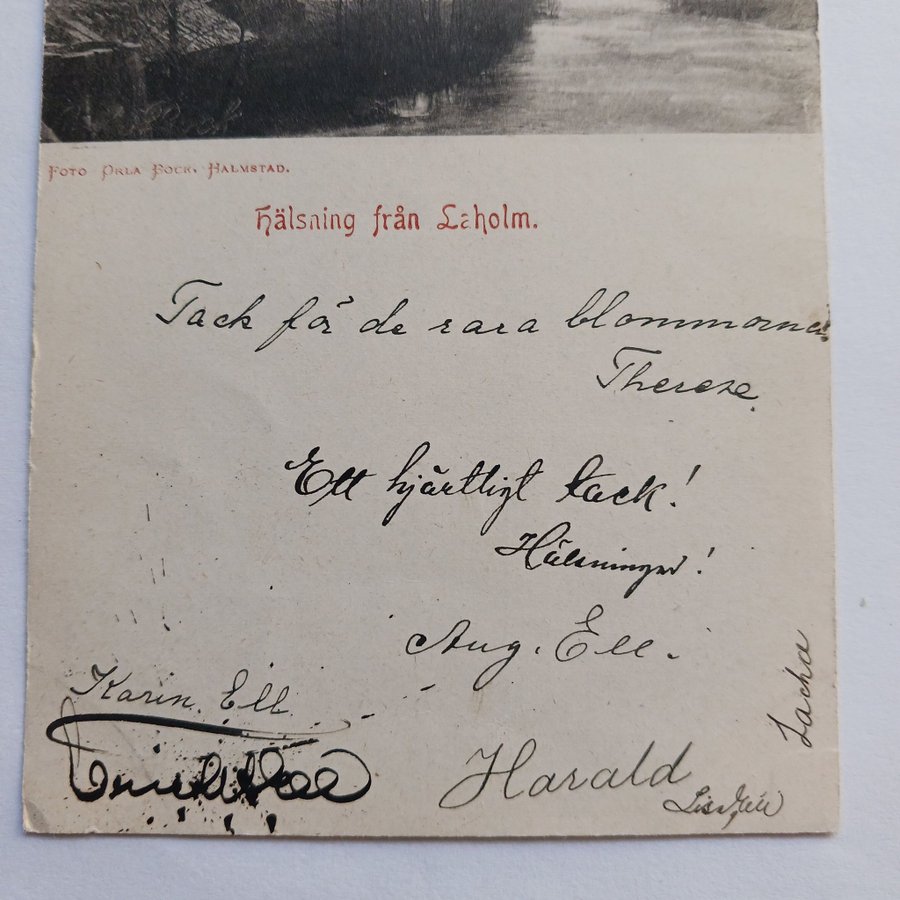 FOTO ORLA BOCK, HALMSTAD.
Hälsning från Laholm.
Tack för de rara blommorna.
Therese.
Ett hjärtligt tack!
Hälsningar!
Aug. Ell.
Karin Ell
Harald